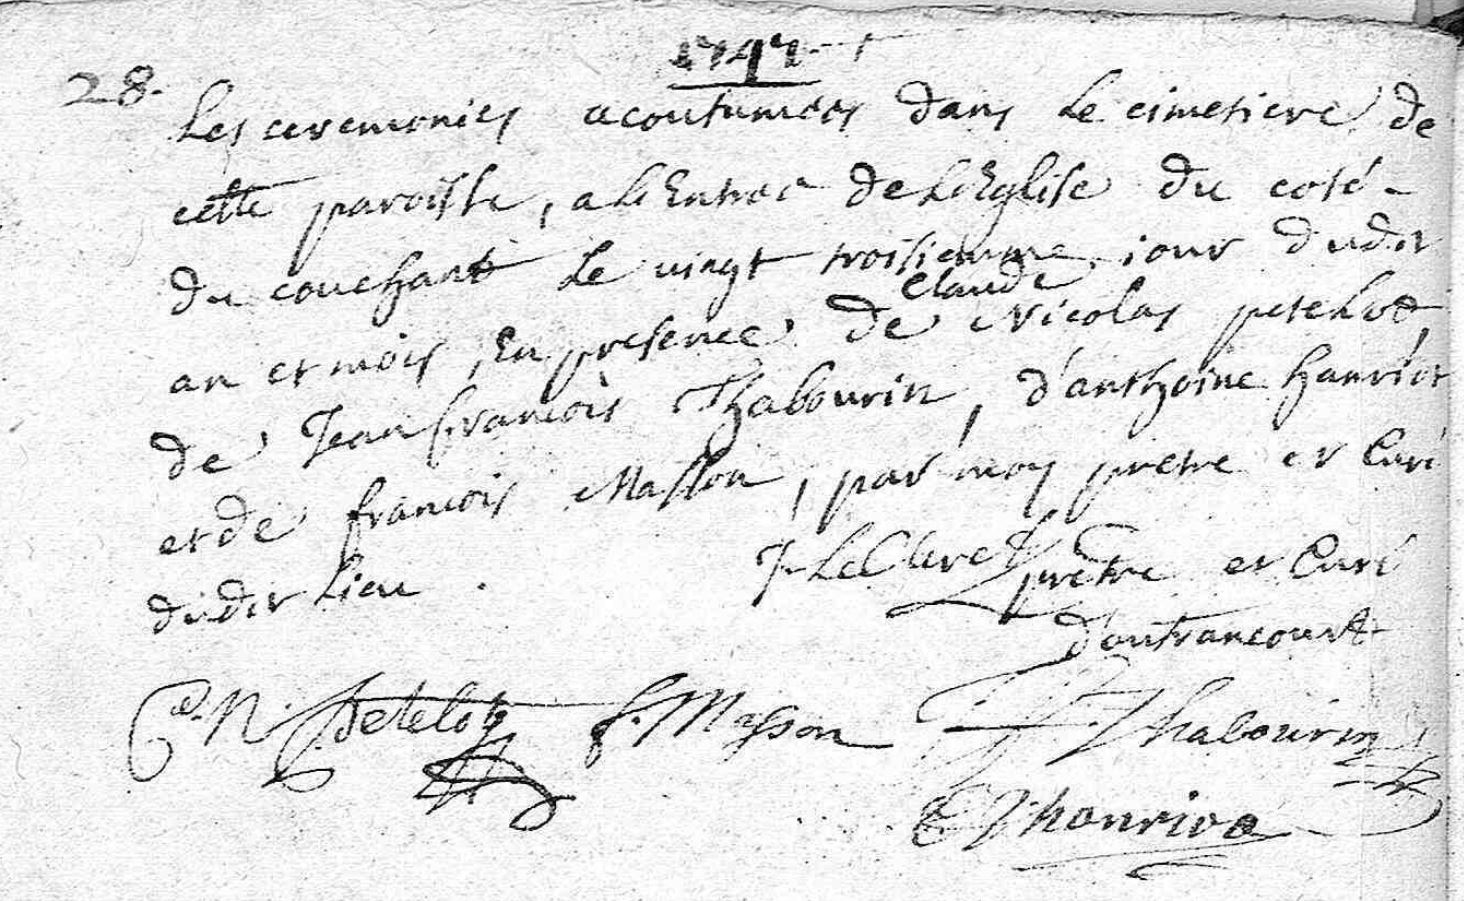 1747
28.
Les ceremonies acoutumées dans Le cimetiere de
cette paroisse, a L'Entrée de L'Eglise du coté
du couchant Le vingt troisiemme jour dudit
an et mois, En presence de Claude Nicolas petelot,
de Jean francois Thabourin, d'anthoine hanriot
et de francois Masson, par moy pretre et Curé
dudit Lieu.
J LeClerc pretre et Curé
d'outrancourt
C. N. Petelot f. Masson J. f. Thabourin
hanrion